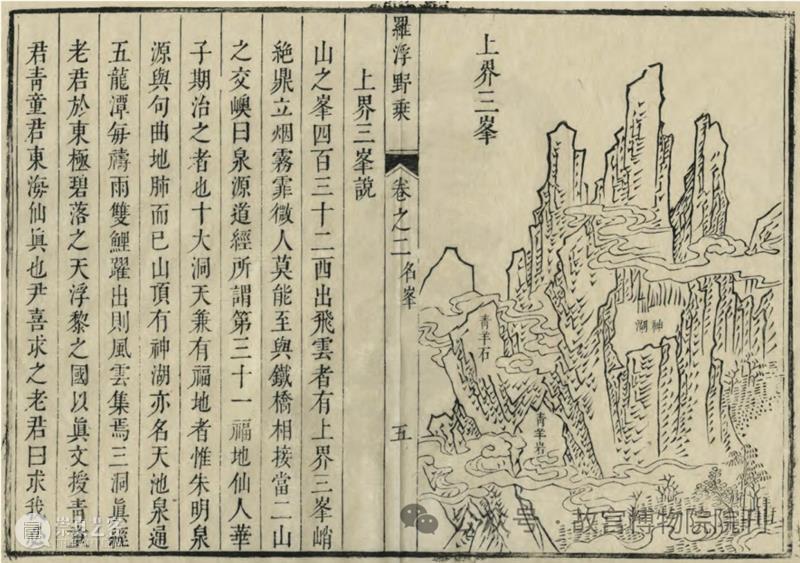 上界三峯
神湖
青羊石
青羊岩
羅浮野乘
卷之二 名峯
五
上界三峯說
山之峯四百三十二西出飛雲者有上界三峯峭
絶鼎立烟霧霏微人莫能至與鐵橋相接當二山
之交㠗曰泉源道經所謂第三十一福地仙人華
子期治之者也十大洞天兼有福地者惟朱明泉
源與句曲地肺而已山頂有神湖亦名天池泉通
五龍潭每禱雨雙鯉躍出則風雲集焉三洞眞經
老君於東極碧落之天浮黎之國以眞文授青童
君青童君東海仙眞也尹喜求之老君曰求我
公众号 · 故宫博物院院刊